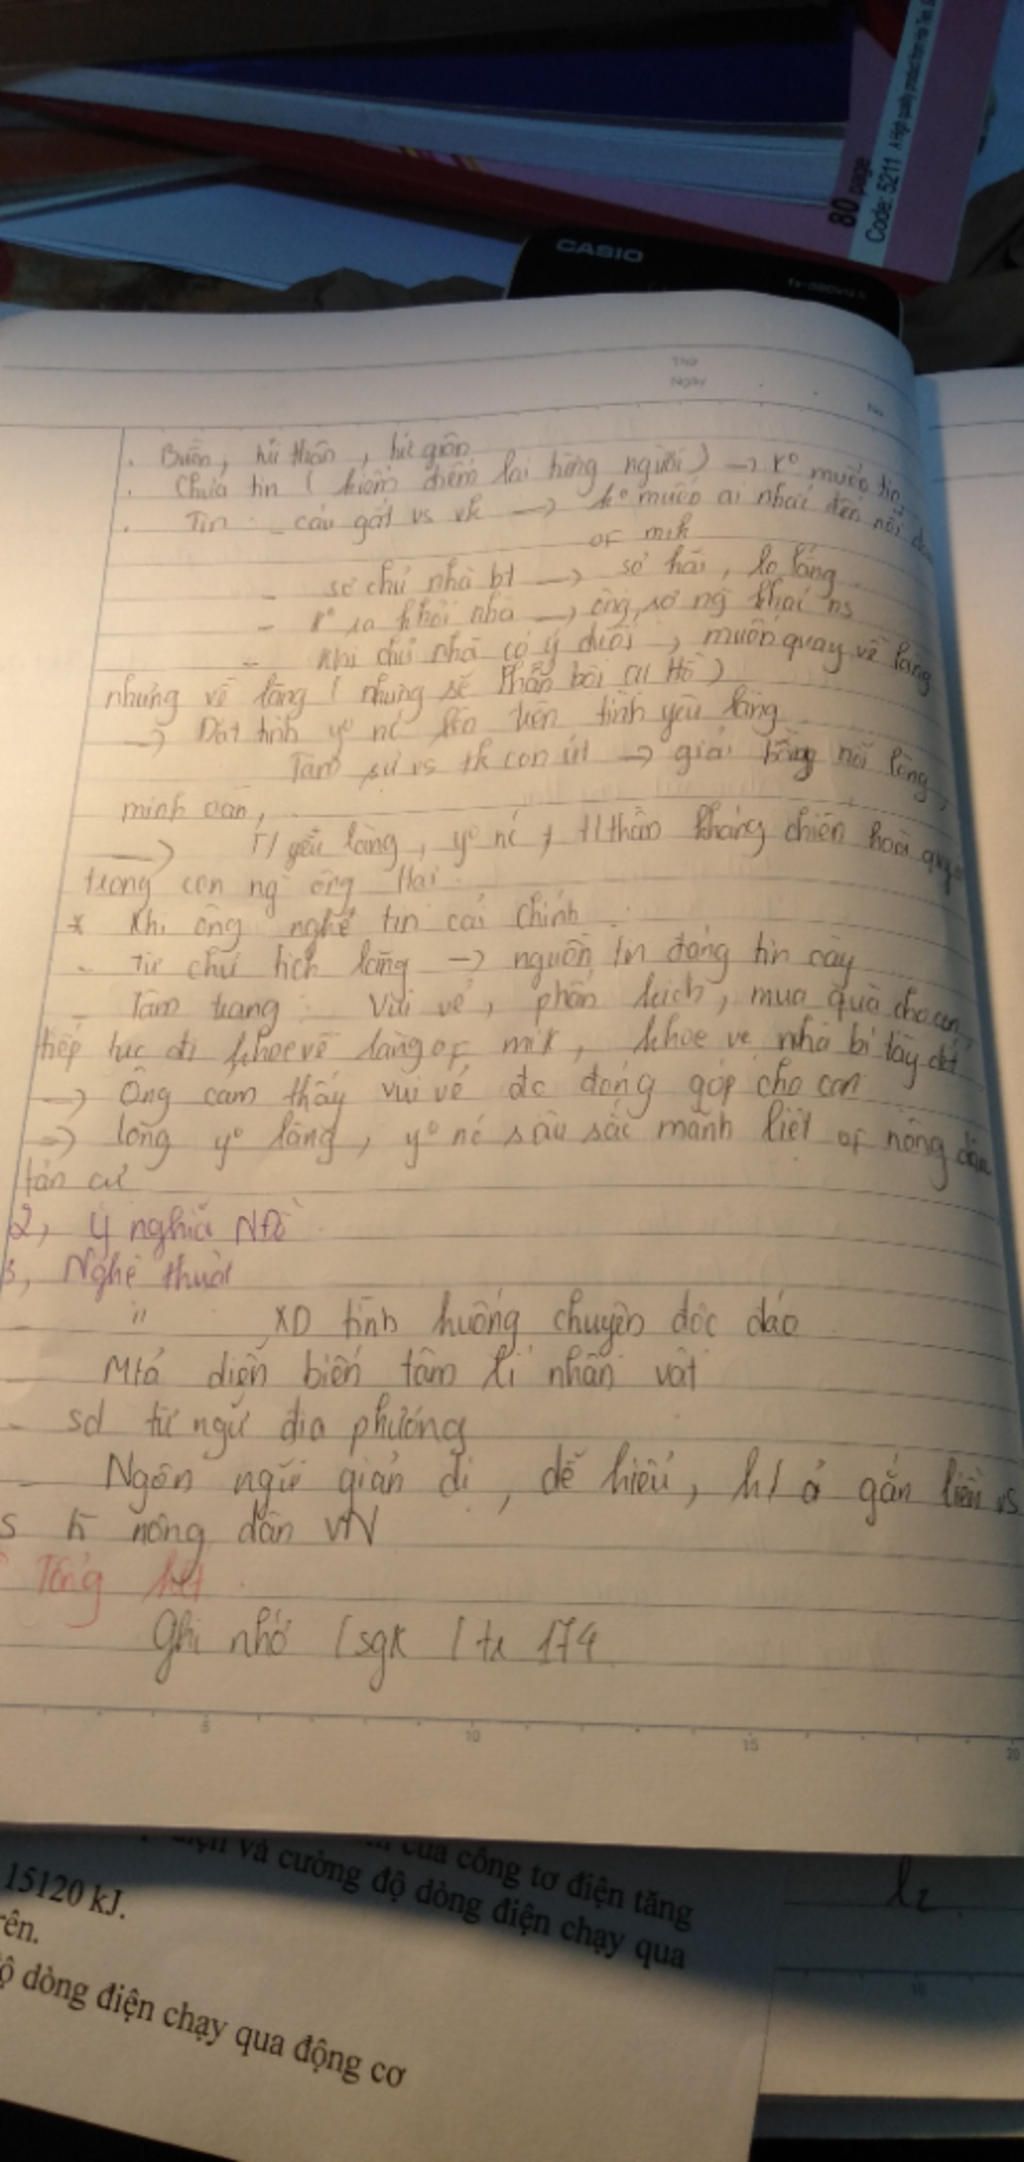 80 page
Code: 5211 A High quality production from Tien
CASIO
fx-580VN X
Thứ
Ngày
No
. Buồn, hủ thân, tức giận
. Chưa tin (kiểm điểm lại từng người) → k° muốn tin
. Tin: _ cáu gắt vs vk → k° muốn ai nhắc đến nỗi đau
of mik
- sợ chủ nhà bt → sợ hãi, lo lắng
- k° ra khỏi nhà → ông sợ ng khác ns
- Khi chủ nhà có ý đuổi, muốn quay về làng
nhưng về làng (nhưng sẽ phản bội CM Hồ)
→ Đặt tình y° nc lên trên tình yêu làng
Tâm sự vs th con út → giãi bày nỗi lòng,
minh oan,
→ T/ yêu làng, y° nc, t/thần kháng chiến hoà quyện
trong con ng ông Hai
* Khi ông nghe tin cải chính
- Từ chủ tịch làng → nguồn tin đáng tin cậy
- Tâm trạng: Vui vẻ, phấn kích, mua quà cho con,
tiếp tục đi khoe về làng of mik, khoe về nhà bị tây đốt
→ Ông cảm thấy vui vẻ đc đóng góp cho
→ lòng y° làng, y° nc sâu sắc mãnh liệt of nông dân
tản cư
2, Ý nghĩa NĐề
3, Nghệ thuật
" XD tình huống chuyện độc đáo
Mtả diễn biến tâm lí nhân vật
- sd từ ngữ địa phương
- Ngôn ngữ giản dị, dễ hiểu, h/ ả gắn liền vs
nông dân VN
Tổng kết
Ghi nhớ /sgk / tr 174
5
10
15
20
của công tơ điện tăng
và cường độ dòng điện chạy qua
15120 kJ.
dòng điện chạy qua động cơ